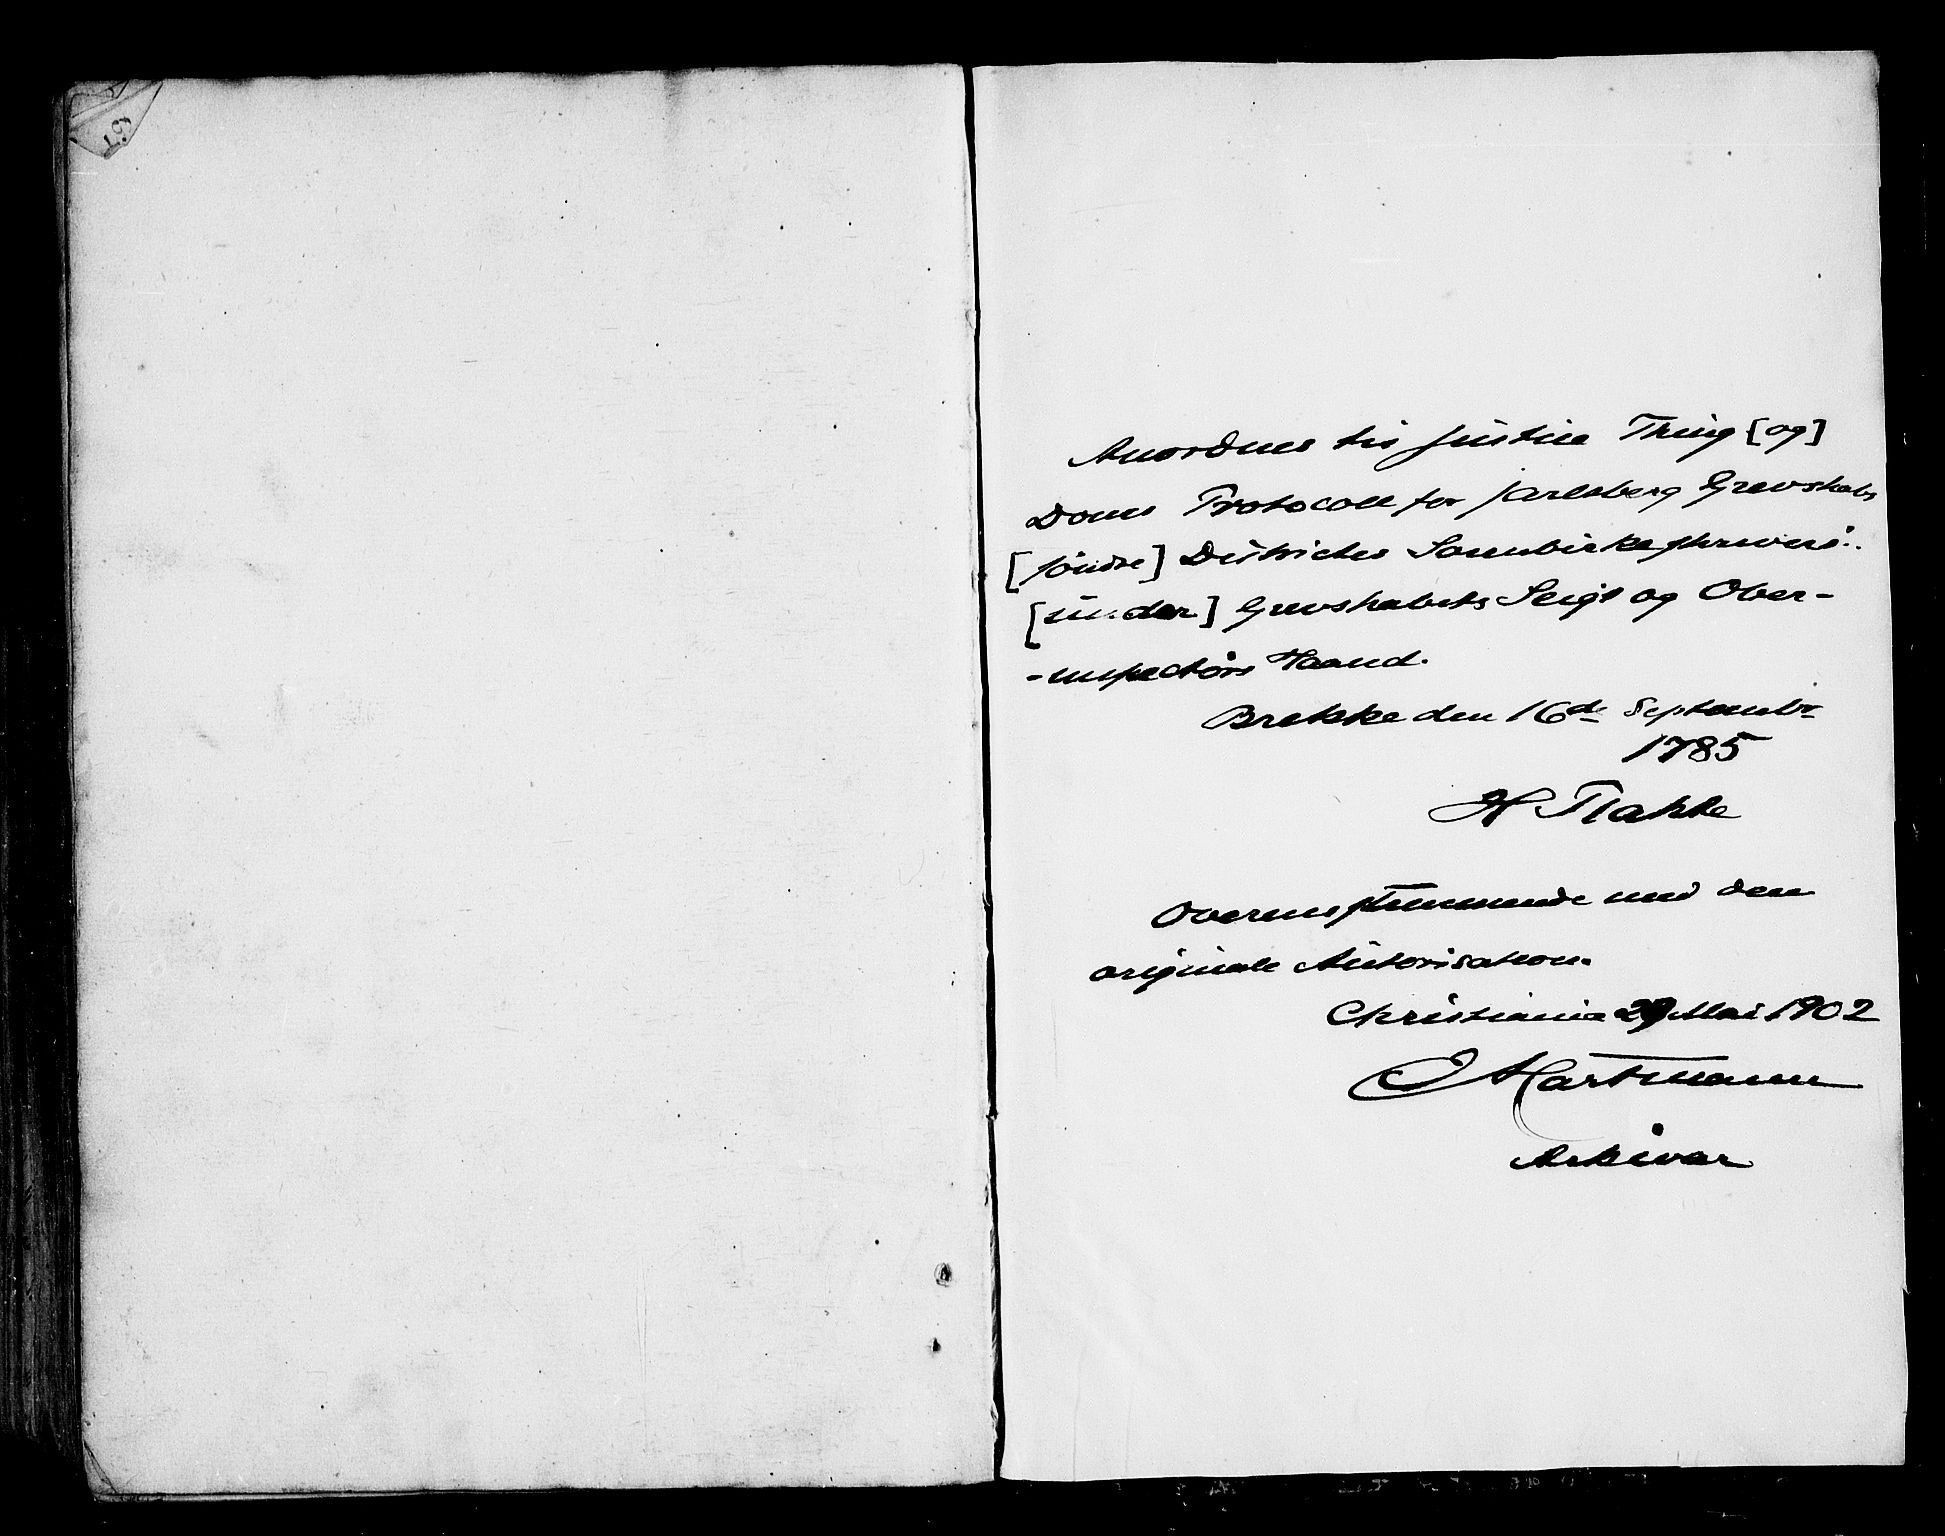 67
Anordnes til Justice Thing [og]
Doms Protocoll for Jarlsberg Grevskabs
[søndre] Districtes Sorenbirkeskriveri:
[under] Grevskabets Seigl og Ober-
-inspectörs Haand.
Brekke den 16de Septembr
1785
H Flakke
Overensstemmende med den
originale Autorisation.
Christiania 29 Mai 1902
Hartmann
Arkivar